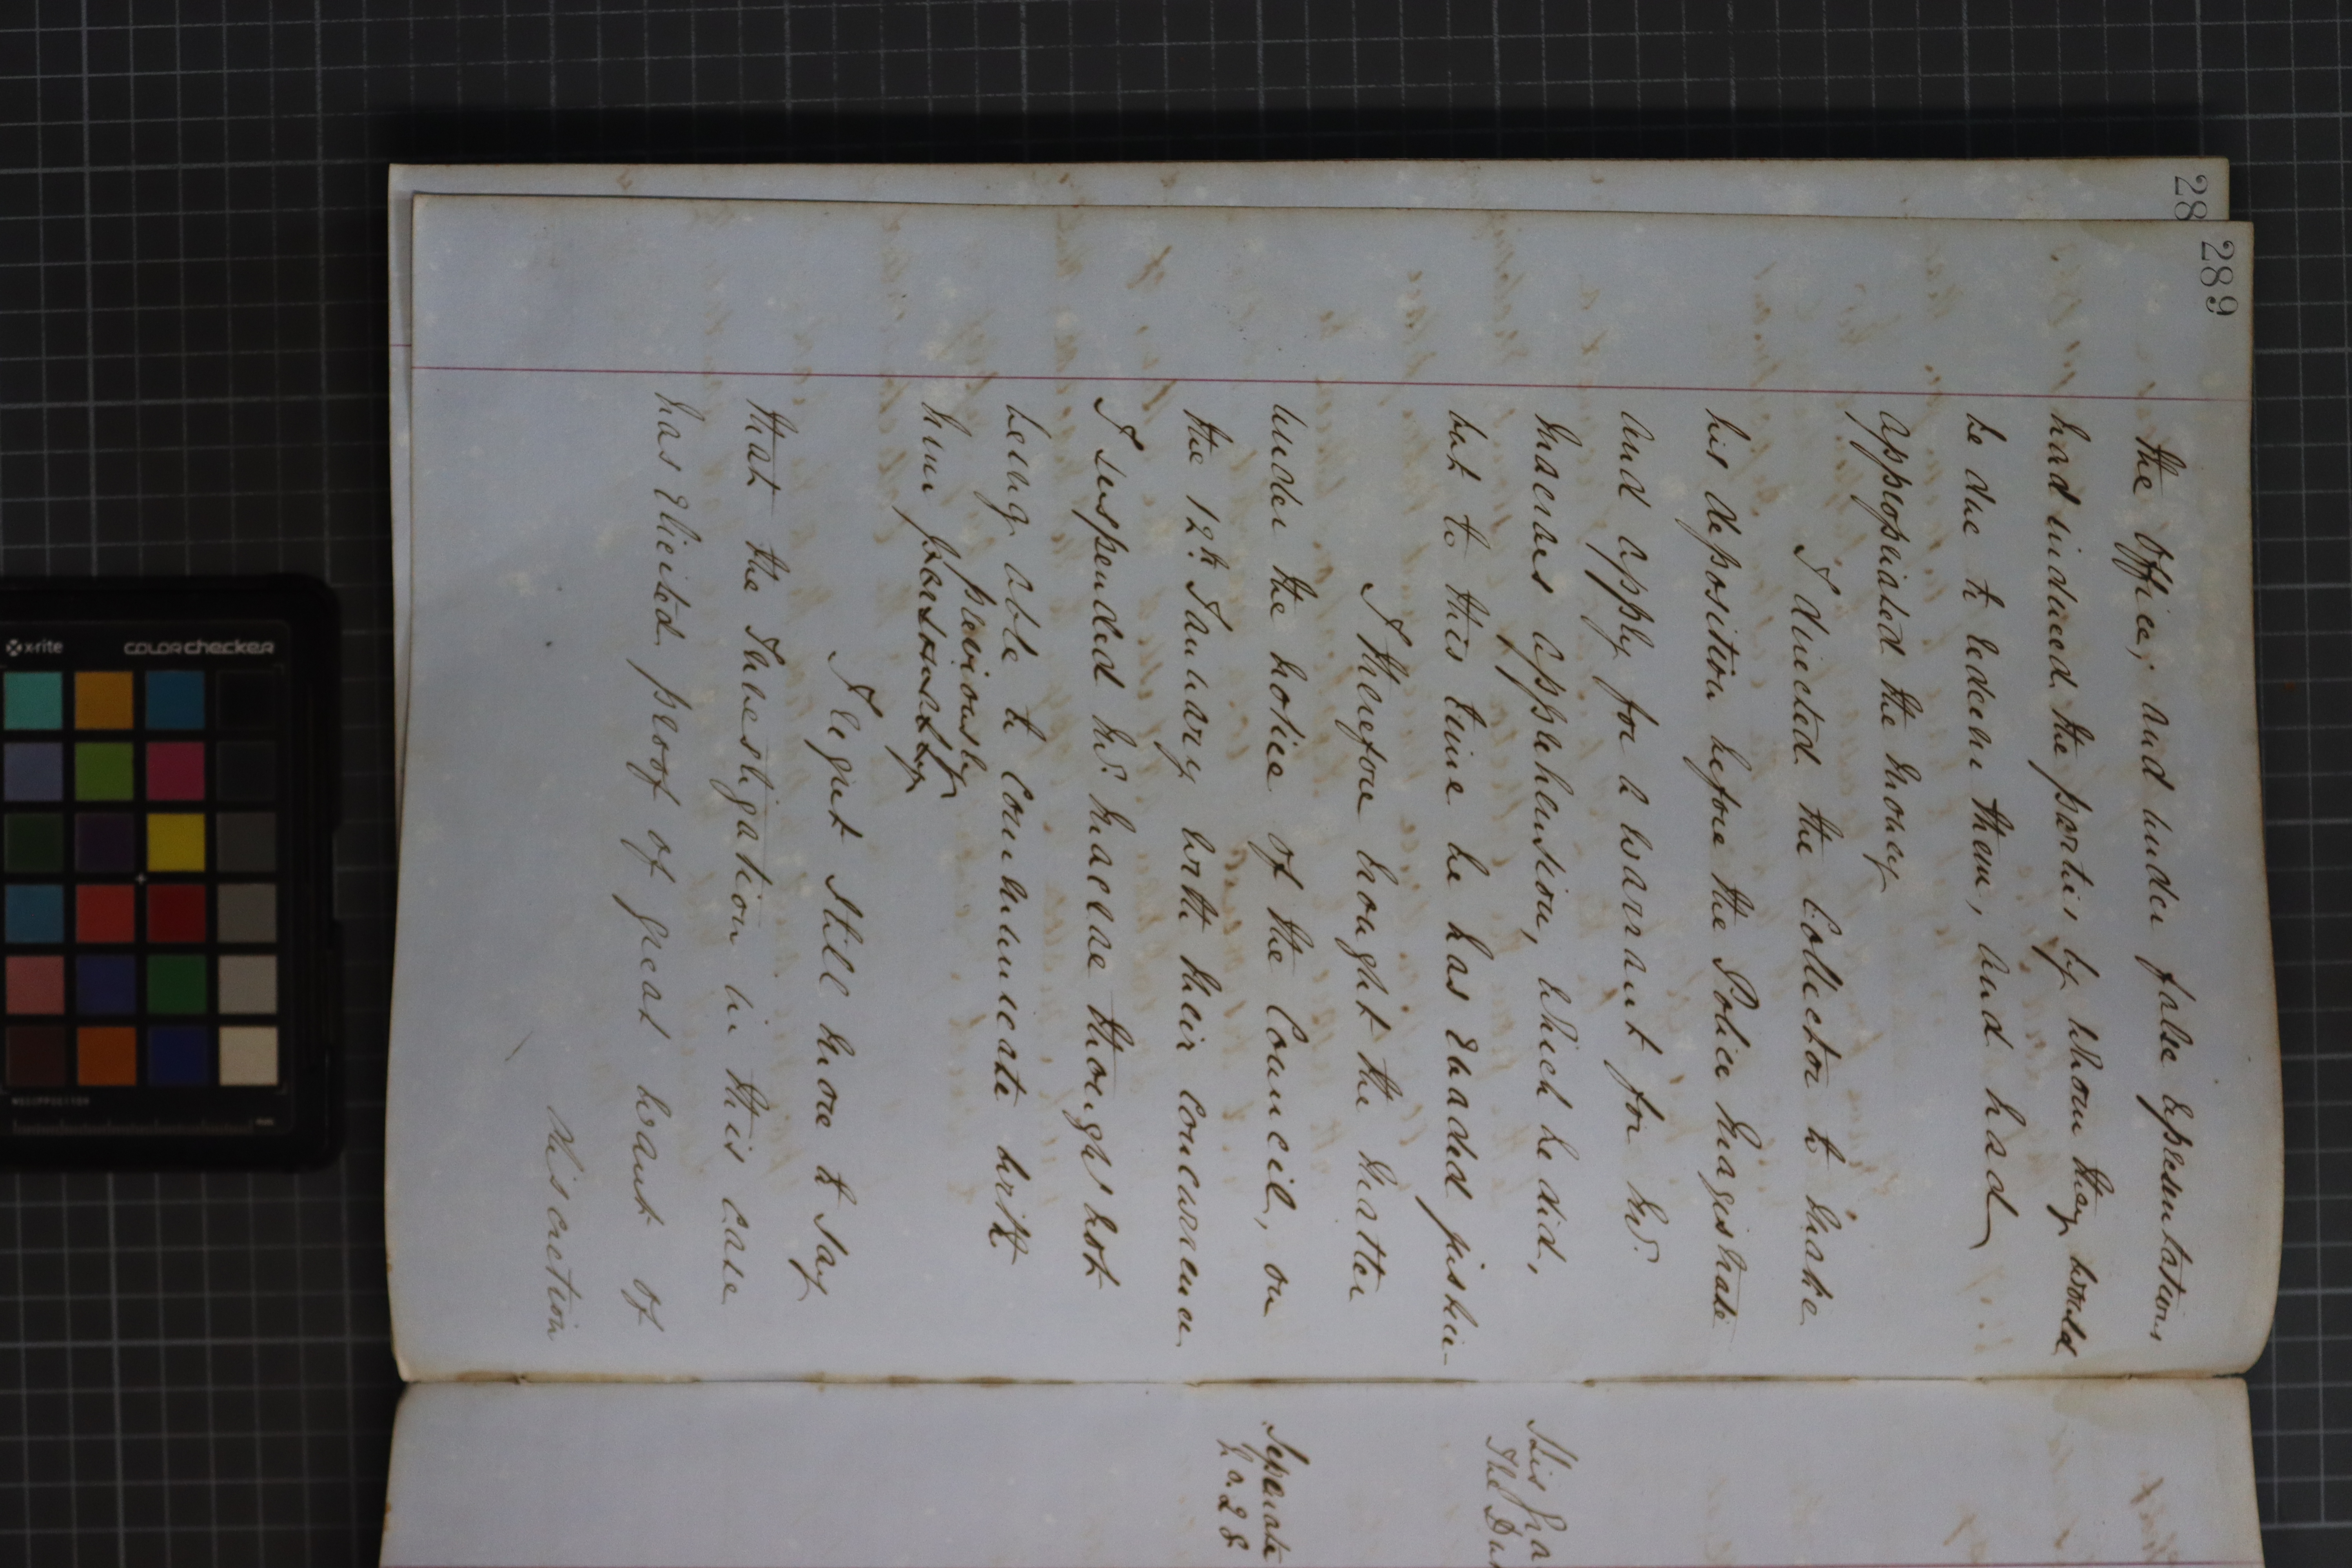 289
the Office, and under false representations
had induced the parties by whom they would
be due to redeem them, and had
appropriated the money
I directed the Collector to make
his deposition before the Police Magistrate
and apply for a warrant for Mr.
Macraes apprehension, which he did,
but to this time he has evaded justice-
I therefore brought the matter
under the notice of the Council, on
the 12th January with their concurrence
I suspended Mr. Macrae though not
being able to communicate with
previously
him personally
I regret still more to say
that the Investigation in this case
has elicited proof of great want of
discretion
28
Separate
No. 28
His Gra
The Du
x-rite colorchecker